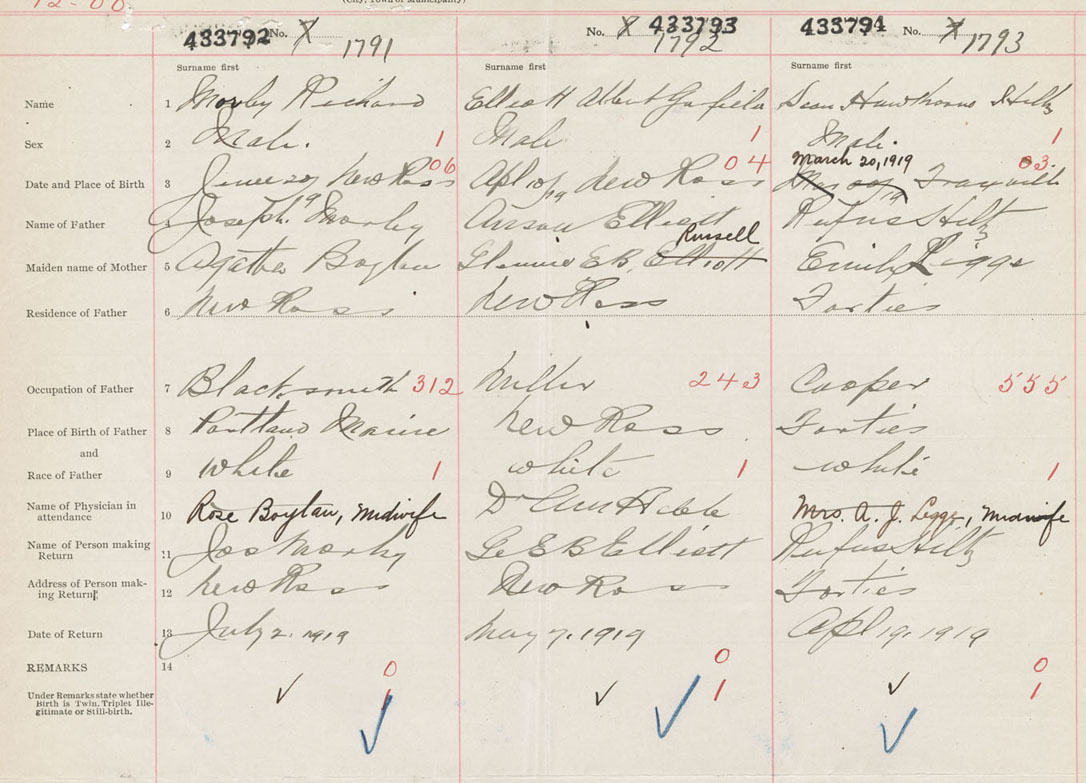 12-00
(City, Town or Municipality)
433792 No. X 1791
No. X 433793 1792
433794 No. X 1793
Surname first Surname first Surname first
Name 1 Morley Richard Elliott Albert Garfield Hiltz
Sex 2 Male. 1 Male 1 Male. 1
March 20, 1919
Date and Place of Birth 3 June 29 19 New Ross 06 Apl 10/19 New Ross 04 03.
Name of Father 4 Joseph Morley Elliott Rufus Hiltz
Russell
Maiden name of Mother 5 Agatha Boylan E B. Elliott Emily Legge
Residence of Father 6 New Ross New Ross Forties
Occupation of Father 7 Blacksmith 312 Miller 243 Cooper 555
Place of Birth of Father 8 Portland Maine New Ross Forties
and
Race of Father 9 White 1 white 1 white 1
Name of Physician in
attendance 10 Rose Boylan, Midwife Dr Mrs. A. J. Legge, Midwife
Name of Person making
Return 11 Jos Morley E B Elliott Rufus Hiltz
Address of Person mak-
ing Return 12 New Ross New Ross Forties
Date of Return 13 July 2. 1919 May 7, 1919 Apl 19, 1919
REMARKS 14 0 0 0
Under Remarks state whether
Birth is Twin, Triplet Ille-
gitimate or Still-birth. 1 1 1